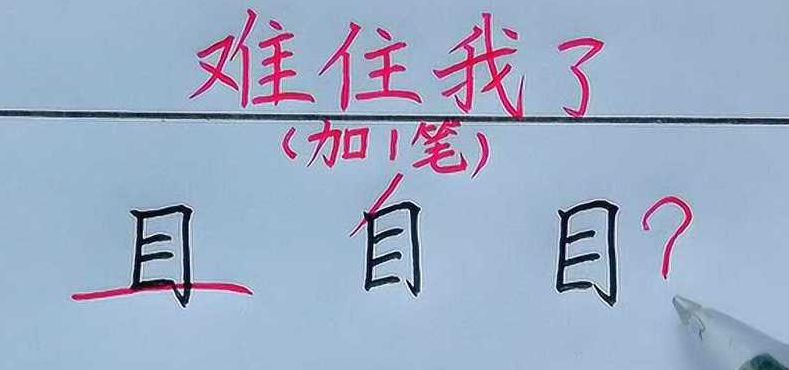 难住我了
(加1笔)
且 自 目?